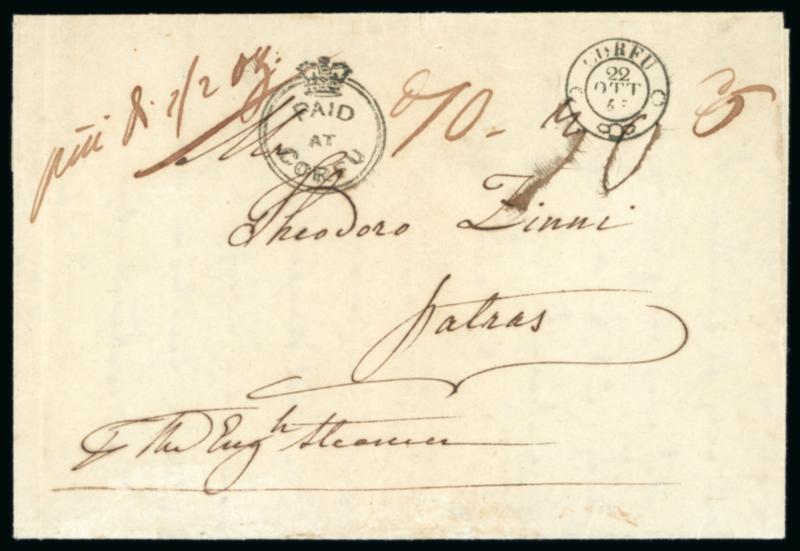 più di 1/2 oz.
PAID
AT
CORFU
CORFU
22
OTT
Theodoro Zinni
Patras
The Engh Steamer